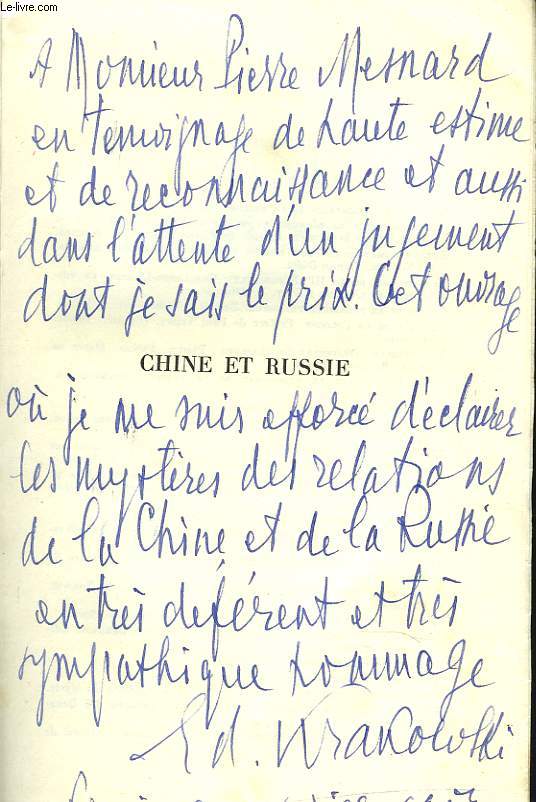 Le-livre.com
A Monsieur Pierre Mesnard
en témoignage de haute estime
et de reconnaissance et aussi
dans l'attente d'un jugement
dont je sais le prix. Cet ouvrage
CHINE ET RUSSIE
où je me suis efforcé d'éclairer
les mystères des relations
de la Chine et de la Russie
en très déférent et très
sympathique hommage
Ed. Krakowski